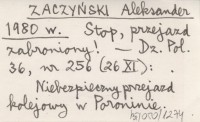 ZACZYŃSKI Aleksander
1980 w. Stop, przejazd
zabroniony! — Dz. Pol.
36, nr 256 (26 XI): .
Niebezpieczny przejazd
kolejowy w Poroninie.